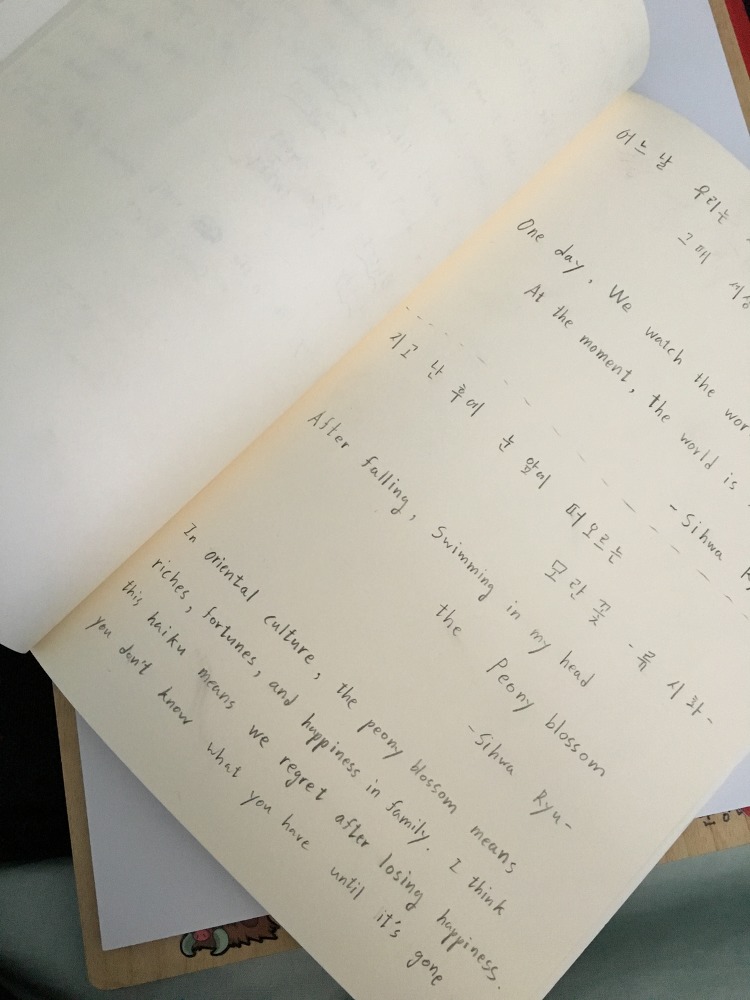 어느 날 우리는
그때 세상
One day, We watch the wor
At the moment, the world is
- Sihwa R
지고 난 후에 눈 앞에 떠오르는
모란 꽃 - 류 시 화 -
After falling, Swimming in my head
the Peony blossom
- Sihwa Ryu -
In oriental culture, the peony blossom means
riches, fortunes, and happiness in family. I think
this haiku means we regret after losing happiness.
you don't know what you have until it's gone